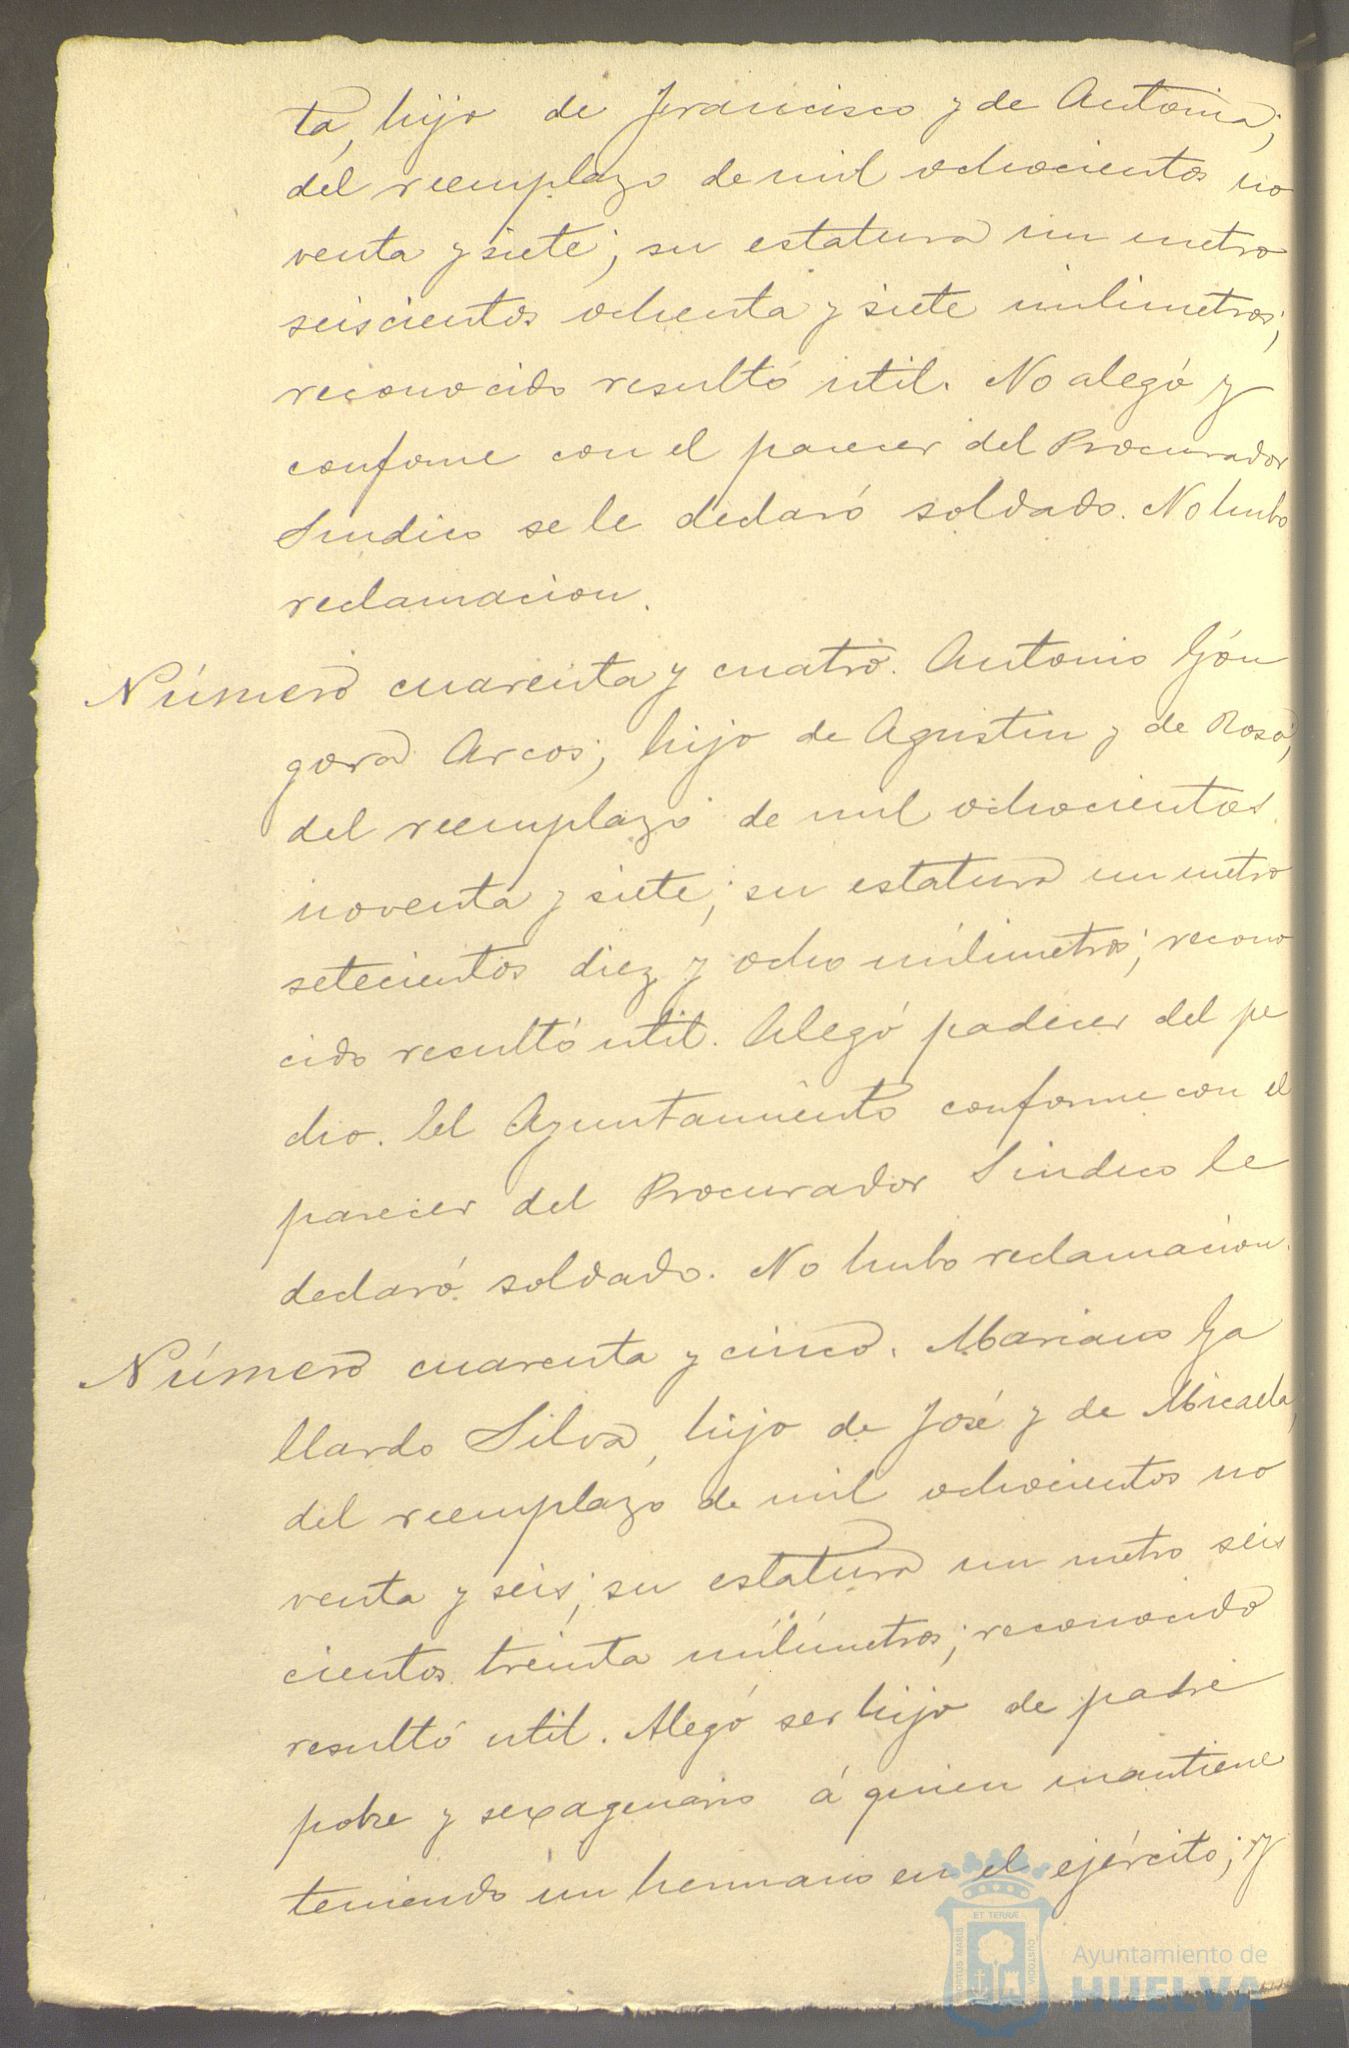 ta, hijo de Francisco y de Antonia;
del reemplazo de mil ochocientos no
venta y siete; su estatura un metro
seiscientos ochenta y siete milimetros;
reconocido resultó util. No alegó y
confome con el parecer del Procurador
Sindico se le declaró soldado. No hubo
reclamacion.
Número cuarenta y cuatro. Antonio Gón
gora Arcos; hijo de Agustin y de Rosa;
del reemplazo de mil ochocientos
noventa y siete; su estatura un metro
setecientos diez y ocho milimetros; recono
cido resultó util. Alegó padecer del pe
cho. El Ayuntamiento conforme con el
parecer del Procurador Sindico le
declaró soldado. No hubo reclamacion.
Número cuarenta y cinco. Mariano Ga
llardo Silva, hijo de José y de Micaela,
del reemplazo de mil ochocientos no
venta y seis; su estatura un metro seis
cientos treinta milimetros; reconocido
resultó util. Alegó ser hijo de padre
pobre y sexagenario á quien mantiene
teniendo un hermano en el ejército; y
ET TERRÆ
PORTUS MARIS
CUSTODIA
Ayuntamiento de
HUELVA